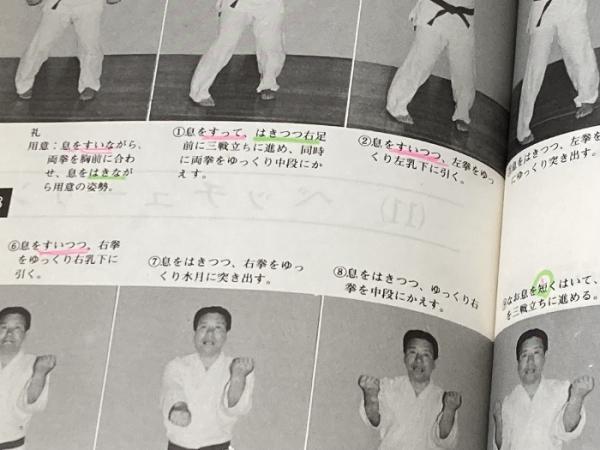 礼
用意:息をすいながら、
両拳を胸前に合わ
せ、息をはきなが
ら用意の姿勢。
①息をすって、はきつつ右足
前に三戦立ちに進め、同時
に両拳をゆっくり中段にか
えす。
②息をすいつつ、左拳をゆっ
くり左乳下に引く。
息をはきつつ、左拳を
ゆっくり突き出す。
⑥息をすいつつ、右拳
をゆっくり右乳下に
引く。
⑦息をはきつつ、右拳をゆっ
くり水月に突き出す。
⑧息をはきつつ、ゆっくり右
拳を中段にかえす。
なお息を短くはいて、
を三戦立ちに進める。
(11) ペッチュ